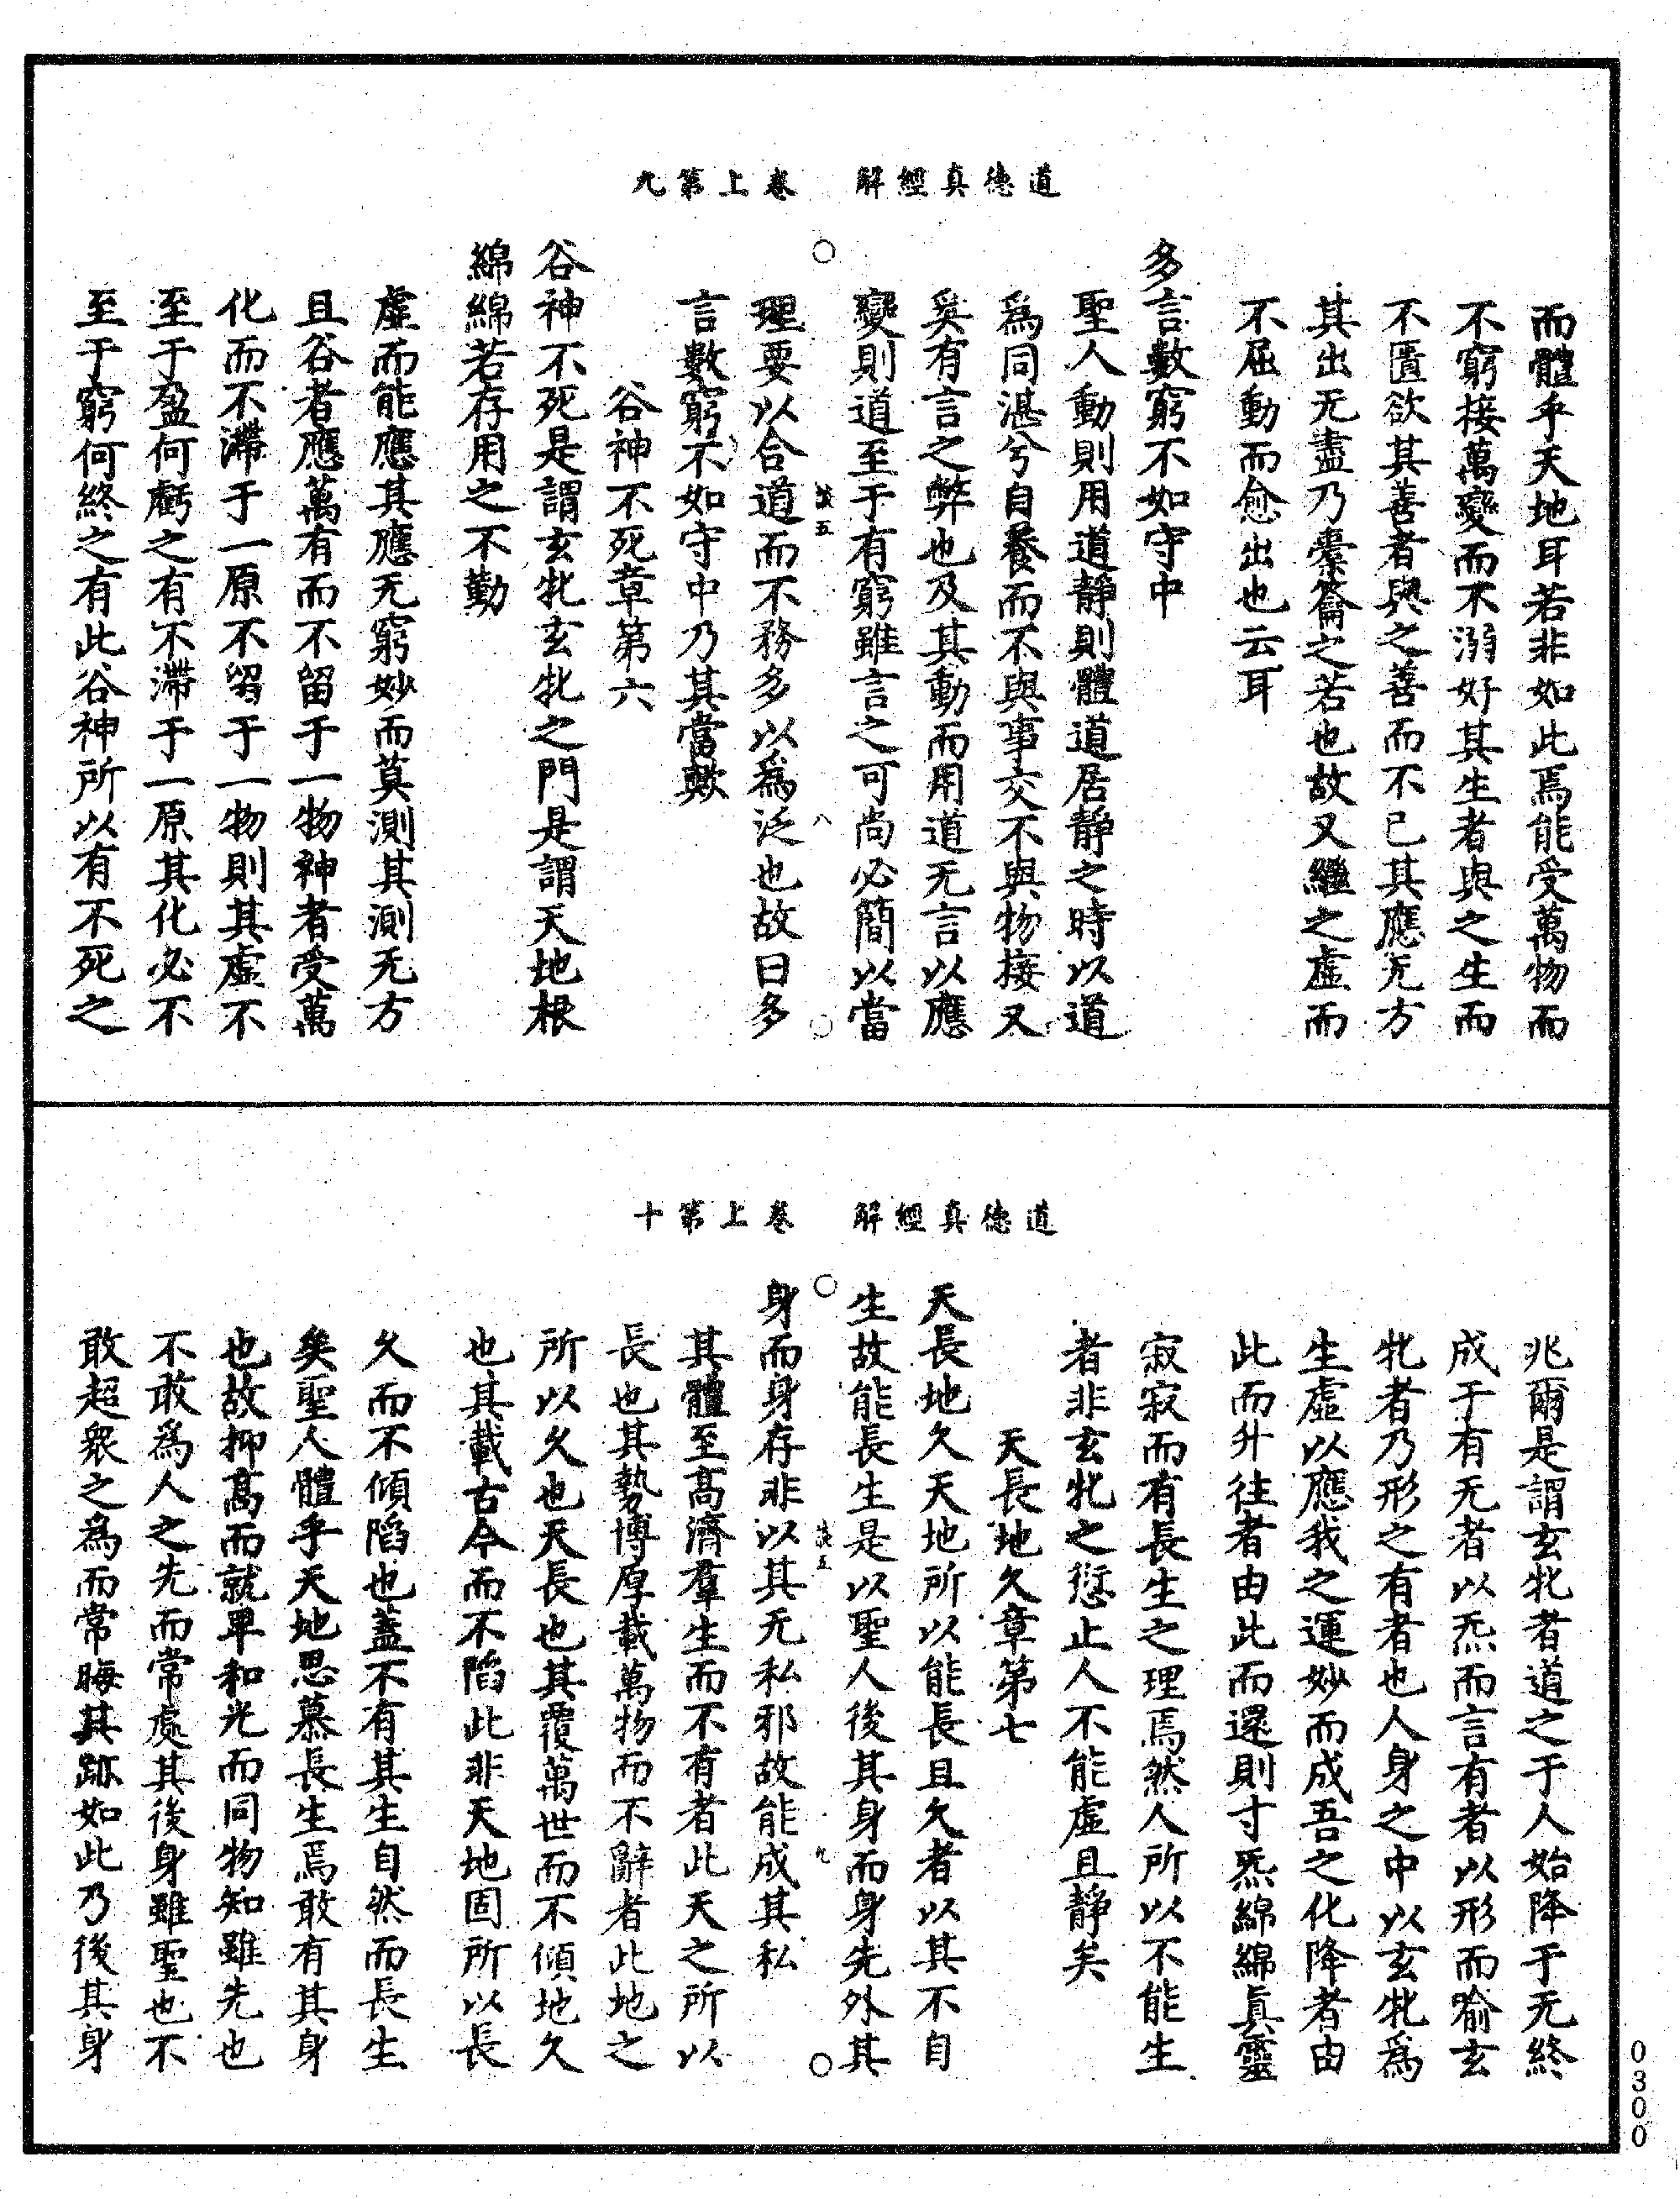 道德真經解　卷上第九
而體乎天地耳若非如此焉能受萬物而
不窮接萬變而不溺好其生者與之生而
不匱欲其善者與之善而不已其應无方
其出无盡乃橐籥之若也故又繼之虛而
不屈動而愈出也云耳
多言數窮不如守中
聖人動則用道靜則體道居靜之時以道
爲同湛兮自養而不與事交不與物接又
奚有言之弊也及其動而用道无言以應
變則道至于有窮雖言之可尚必簡以當
談五　八
理要以合道而不務多以爲泛也故曰多
言數窮不如守中乃其當歟
谷神不死章第六
谷神不死是謂玄牝玄牝之門是謂天地根
綿綿若存用之不勤
虛而能應其應无窮妙而莫測其測无方
且谷者應萬有而不留于一物神者受萬
化而不滯于一原不留于一物則其虛不
至于盈何虧之有不滯于一原其化必不
至于窮何終之有此谷神所以有不死之
道德真經解　卷上第十
兆爾是謂玄牝者道之于人始降于无終
成于有无者以炁而言有者以形而喻玄
牝者乃形之有者也人身之中以玄牝爲
生虛以應我之運妙而成吾之化降者由
此而升往者由此而還則寸炁綿綿眞靈
寂寂而有長生之理焉然人所以不能生
者非玄牝之愆止人不能虛且靜矣
天長地久章第七
天長地久天地所以能長且久者以其不自
生故能長生是以聖人後其身而身先外其
談五　九
身而身存非以其无私邪故能成其私
其體至高濟羣生而不有者此天之所以
長也其勢博厚載萬物而不辭者此地之
所以久也天長也其覆萬世而不傾地久
也其載古今而不陷此非天地固所以長
久而不傾陷也蓋不有其生自然而長生
矣聖人體乎天地思慕長生焉敢有其身
也故抑高而就卑和光而同物知雖先也
不敢爲人之先而常處其後身雖聖也不
敢超衆之爲而常晦其跡如此乃後其身
0300